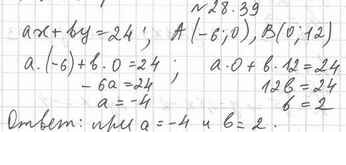 №28.39
ax+by=24; A(-6;0), B(0;12)
a·(-6)+b·0=24; a·0+b·12=24
-6a=24 12b=24
a=-4 b=2
Ответ: при a=-4 и b=2.